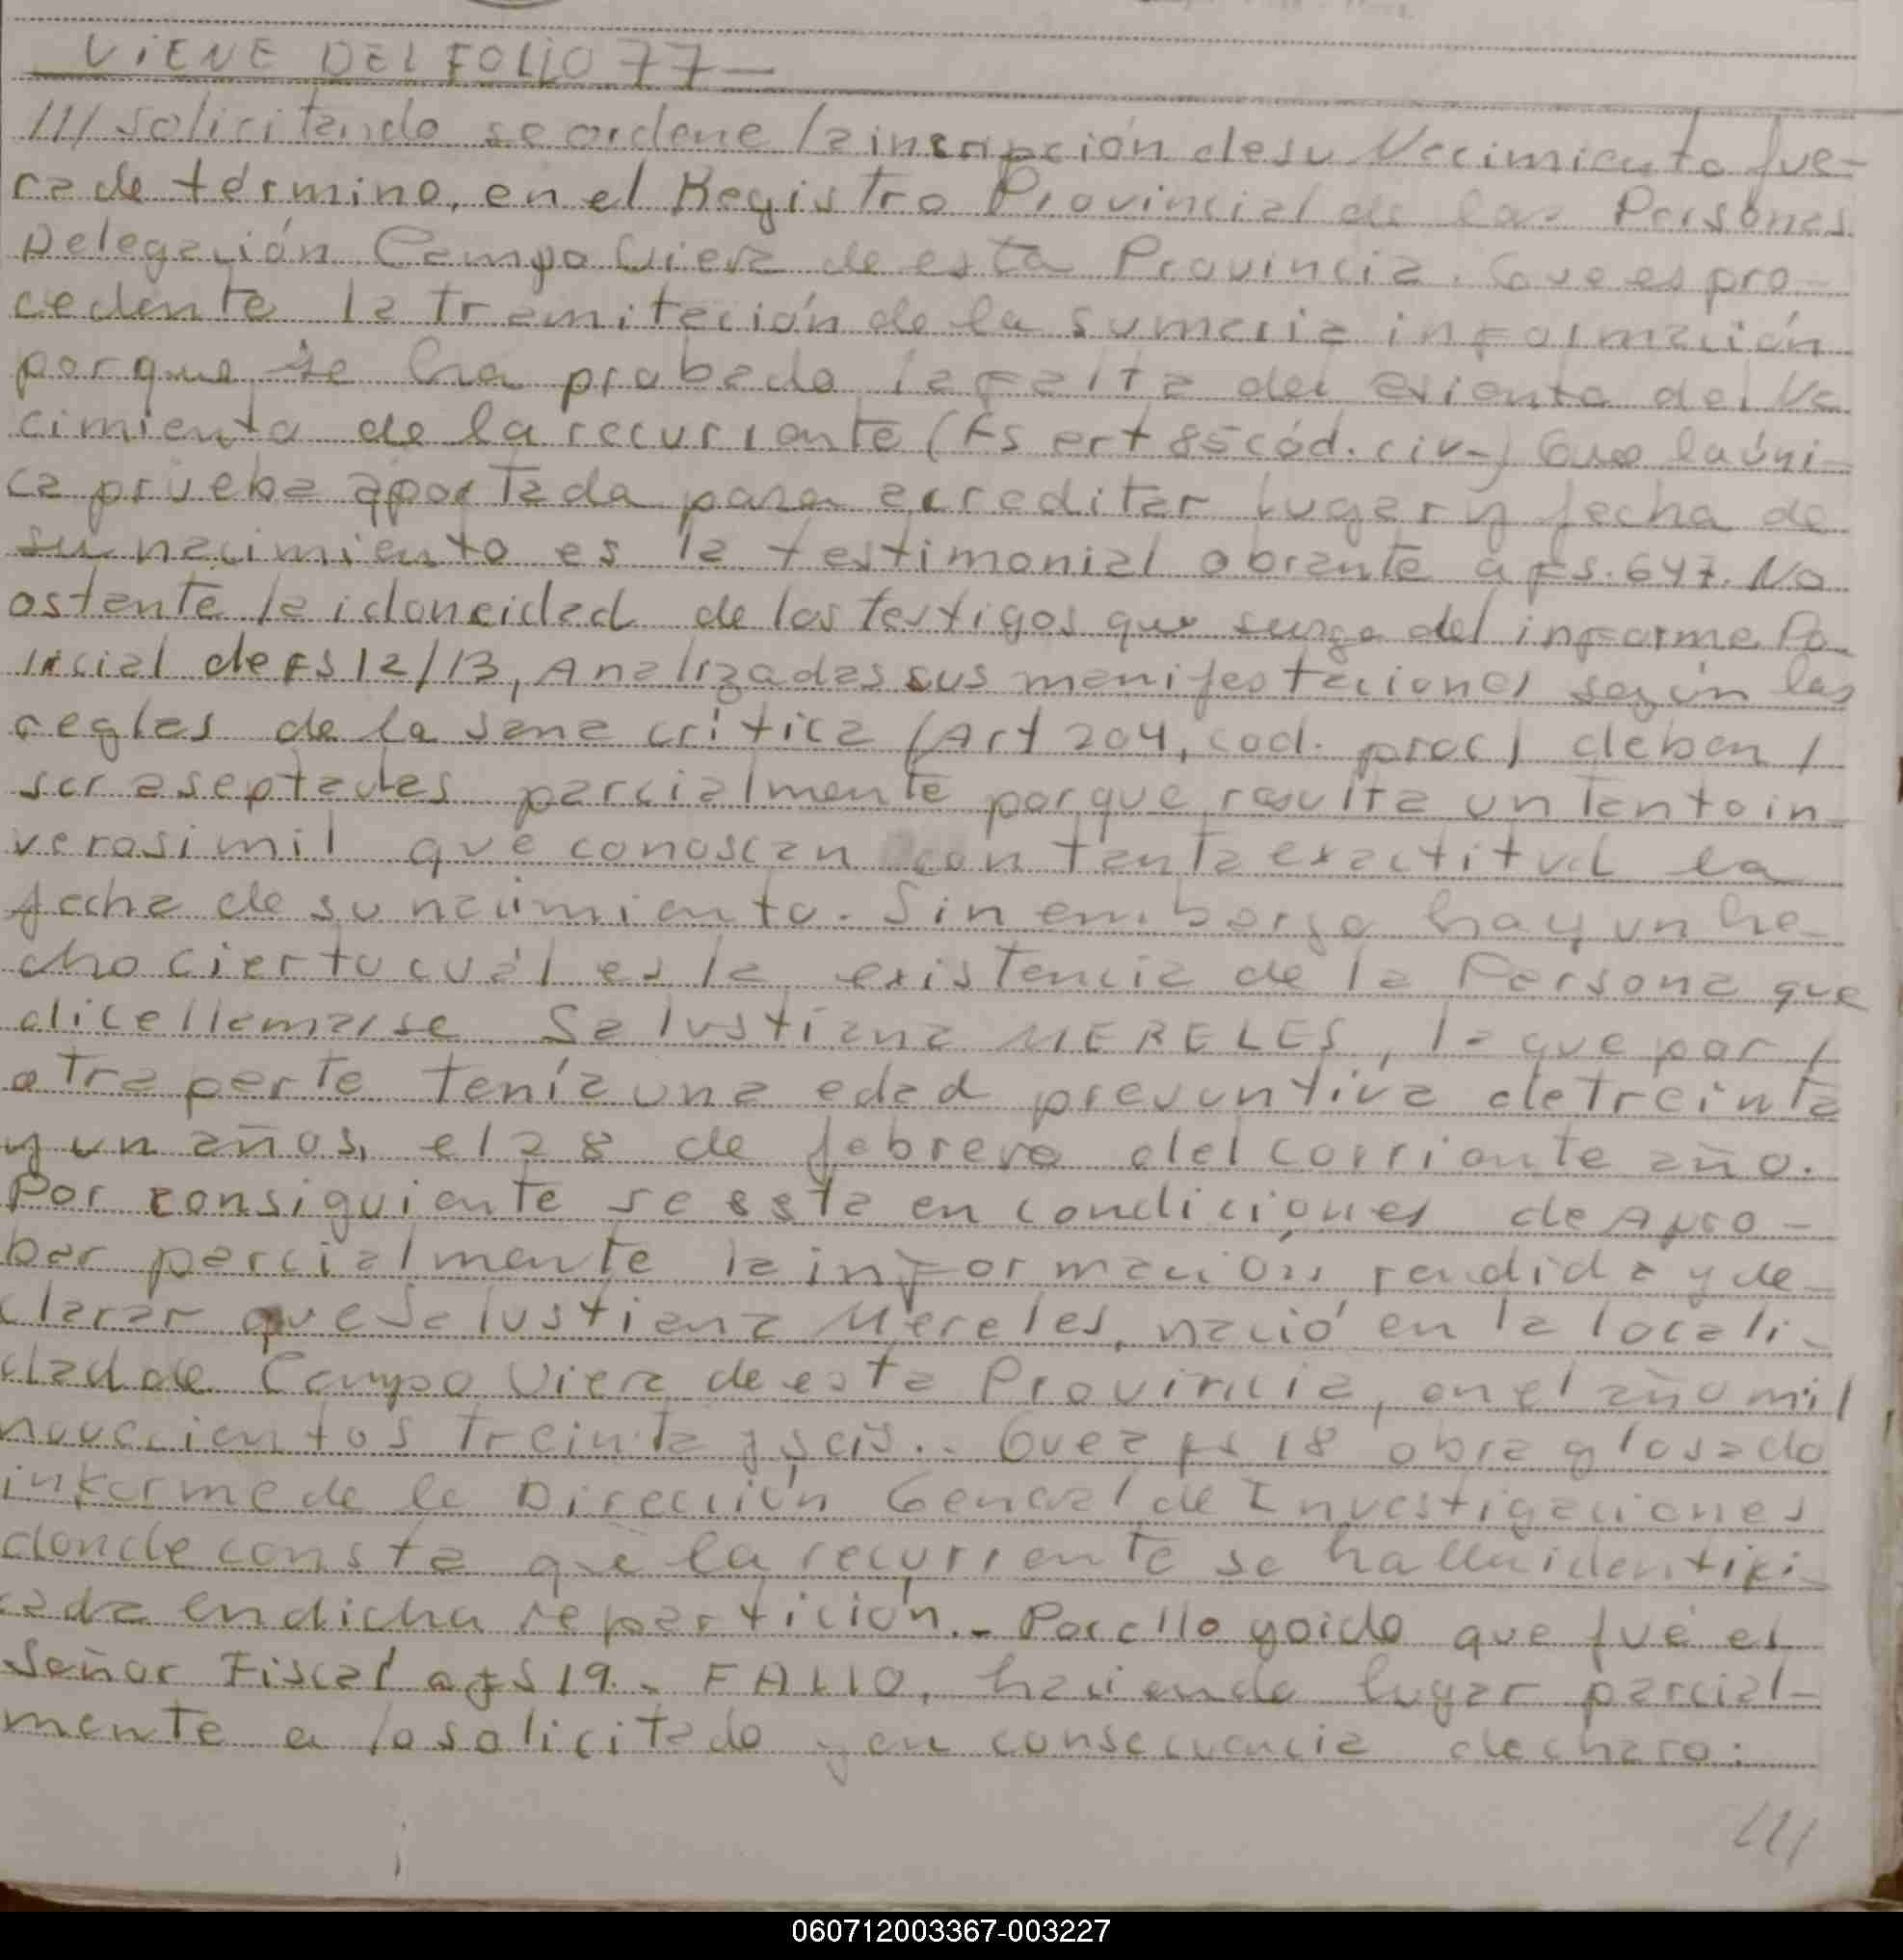 VIENE DEL FOLIO 77-
/// solicitando se ordene la inscripción de su Nacimiento fue-
ra de término, en el Registro Provincial de las Personas
Delegación Campo Viera de esta Provincia. Que es pro-
cedente la tramitación de la sumaria información
porque se ha probado la falta del asiento del Na
cimiento de la recurrente (Fs art 85 cód. civ-) Que la úni-
ca prueba aportada para acreditar lugar y fecha de
su nacimiento es la testimonial obrante a fs. 6y7. No
ostante la idoneidad de los testigos que surge del informe Po-
licial de FS 12/13, Analizadas sus manifestaciones según las
reglas de la sana crítica (Art 204, cod. proc) deben /
ser aseptadas parcialmente porque resulta un tanto in-
verosimil que conoscan con tanta exactitud la
fecha de su nacimiento. Sin embargo hay un he-
cho cierto cuál es la existencia de la Persona que
dice llamarse Salustiana MERELES, la que por /
otra parte tenía una edad presuntiva de treinta
y un años, el 28 de febrero del corriente año.
Por consiguiente se esta en condiciones de Apro-
bar parcialmente la información rendida y de-
clarar que Salustiana Mereles, nació en la locali-
dad de Campo Viera de esta Provincia, en el año mil
novecientos treinta y seis.. Que a fs 18 obra glosado
informe de la Dirección General de Investigaciones
donde consta que la recurrente se halla identifi-
cada en dicha repartición.- Por ello y oido que fué el
Señor Fiscal a fs 19.- FALLO, haciendo lugar parcial-
mente a lo solicitado y en consecuencia declaro:
///
060712003367-003227